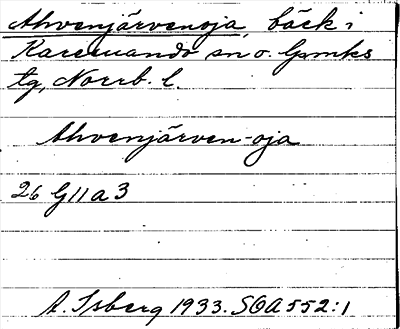 Ahvenjärvenoja, bäck i
Karesuando sn o. lpmks
tg, Norrb. l.
Ahvenjärven-oja
26 G 11 a 3
A. Isberg 1933. SOA 552:1